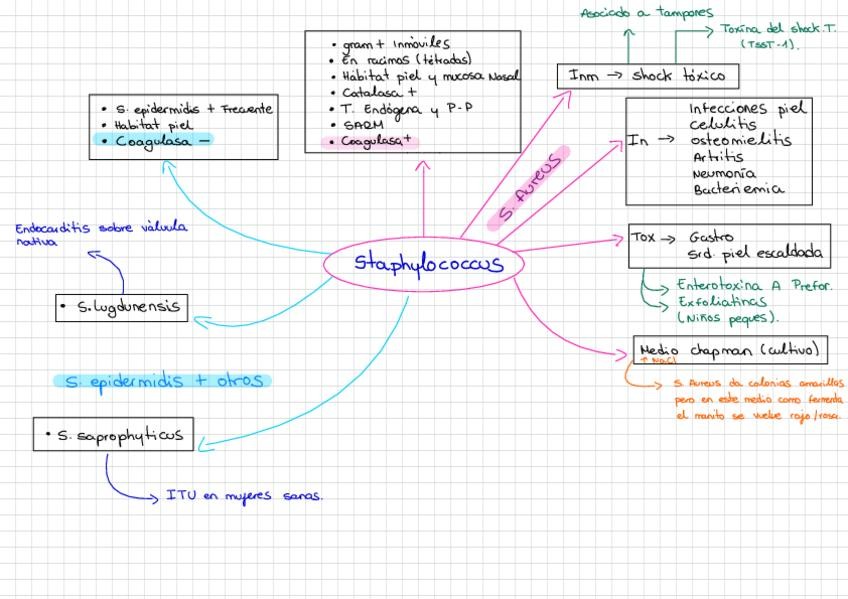 Asociado a tampones
Toxina del shock T.
(TSST-1).
Inm → shock tóxico
• gram+ inmóviles
• En racimos (tétradas)
• Hábitat piel y mucosa Nasal
• Catalasa +
• T. Endógena y P-P
• SARM
• Coagulasa+
• S. epidermidis + Frecuente
• Habitat piel
• Coagulasa -
S. AUREUS
In → Infecciones piel
celulitis
osteomielitis
Artritis
Neumonía
Bacteriemia
Endocarditis sobre válvula
nativa
Staphylococcus
Tox → Gastro
Srd. piel escaldada
Enterotoxina A Prefor.
Exfoliatinas
(Niños peques).
• S. lugdunensis
Medio chapman (cultivo)
↑ NaCl
S. epidermidis + otros
S. Aureus da colonias amarillas
pero en este medio como fermenta
el manito se vuelve rojo/rosa.
• S. saprophyticus
ITU en mujeres sanas.